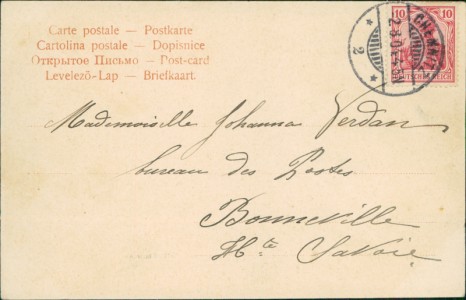 Carte postale — Postkarte
Cartolina postale — Dopisnice
Открытое Письмо — Post-card
Levelező-Lap — Briefkaart.
10 10
CHEMNITZ
2
DEUTSCHES REICH
Mademoiselle Johanna Verdan
bureau des Postes
Bonneville
Hte Savoie